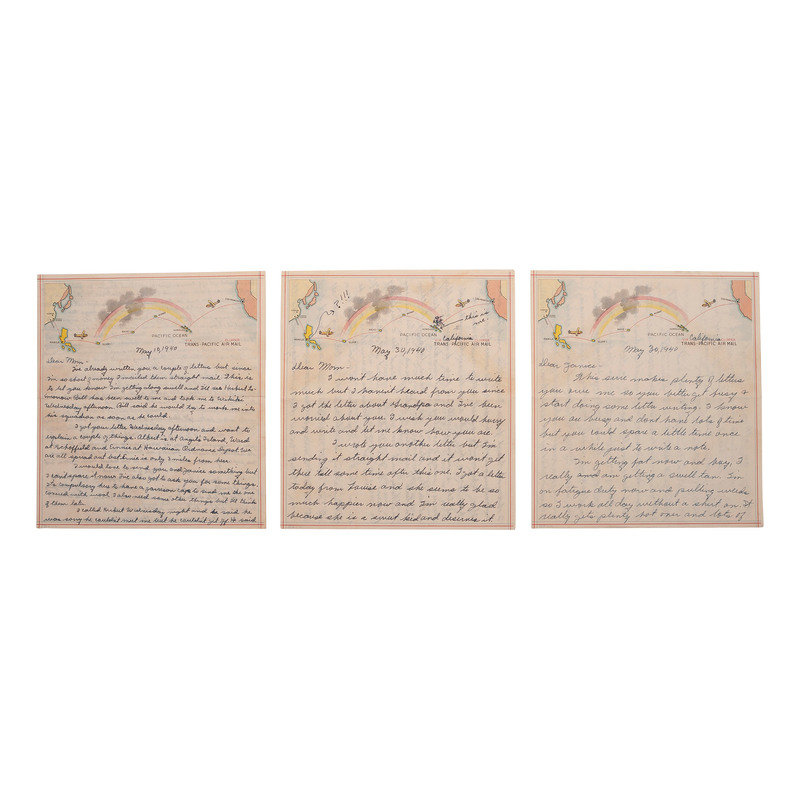 PACIFIC OCEAN
TRANS-PACIFIC AIR MAIL
May 10, 1940
Dear Mom -
I've already written you a couple of letters but since
I'm so short of money I mailed them straight mail. This is
to let you know I'm getting along swell and I'll see Herbert to-
morrow. Bill has been swell to me and took me to Waikiki
Wednesday afternoon. Bill said he would try to work me into
his squadron as soon as he could.
I got your letter Wednesday afternoon and want to
explain a couple of things. Albert is at Angel Island,
at Schofield and at Hawaiian Ordnance Depot. We
are all spread out but is only 2 miles from here.
I would love to send you and Janice something but
I cant spare it now. I've also got to ask you for some things.
Its compulsory here to have a garrison cap so send me the one
I also need some other things but I'll think
of them later.
I called Wednesday night and he said he
was sorry he couldn't meet me but he couldn't get off. He said
?!!!
this is
me.
PACIFIC OCEAN
California
TRANS-PACIFIC AIR MAIL
May 30, 1940
Dear Mom -
I wont have much time to write
much but I havent heard from you since
I got the letter about Grandpa and I've been
worried about you. I wish you would hurry
and write and let me know how you are.
I wrote you another letter but I'm
sending it straight mail and it wont get
there till some time after this one. I got a letter
today from Louise and she seems to be so
much happier now and I'm really glad
because she is a sweet kid and deserves it.
PACIFIC OCEAN
California
TRANS-PACIFIC AIR MAIL
May 30, 1940
Dear Janice -
This sure makes plenty of letters
you owe me so you better get busy &
start doing some letter writing. I know
you are busy and dont have lots of time
but you could spare a little time once
in a while just to write a note.
I'm getting fat now and hey, I
really am getting a swell tan. I'm
on fatigue duty now and pulling weeds
so I work all day without a shirt on. It
really gets plenty hot over and lots of